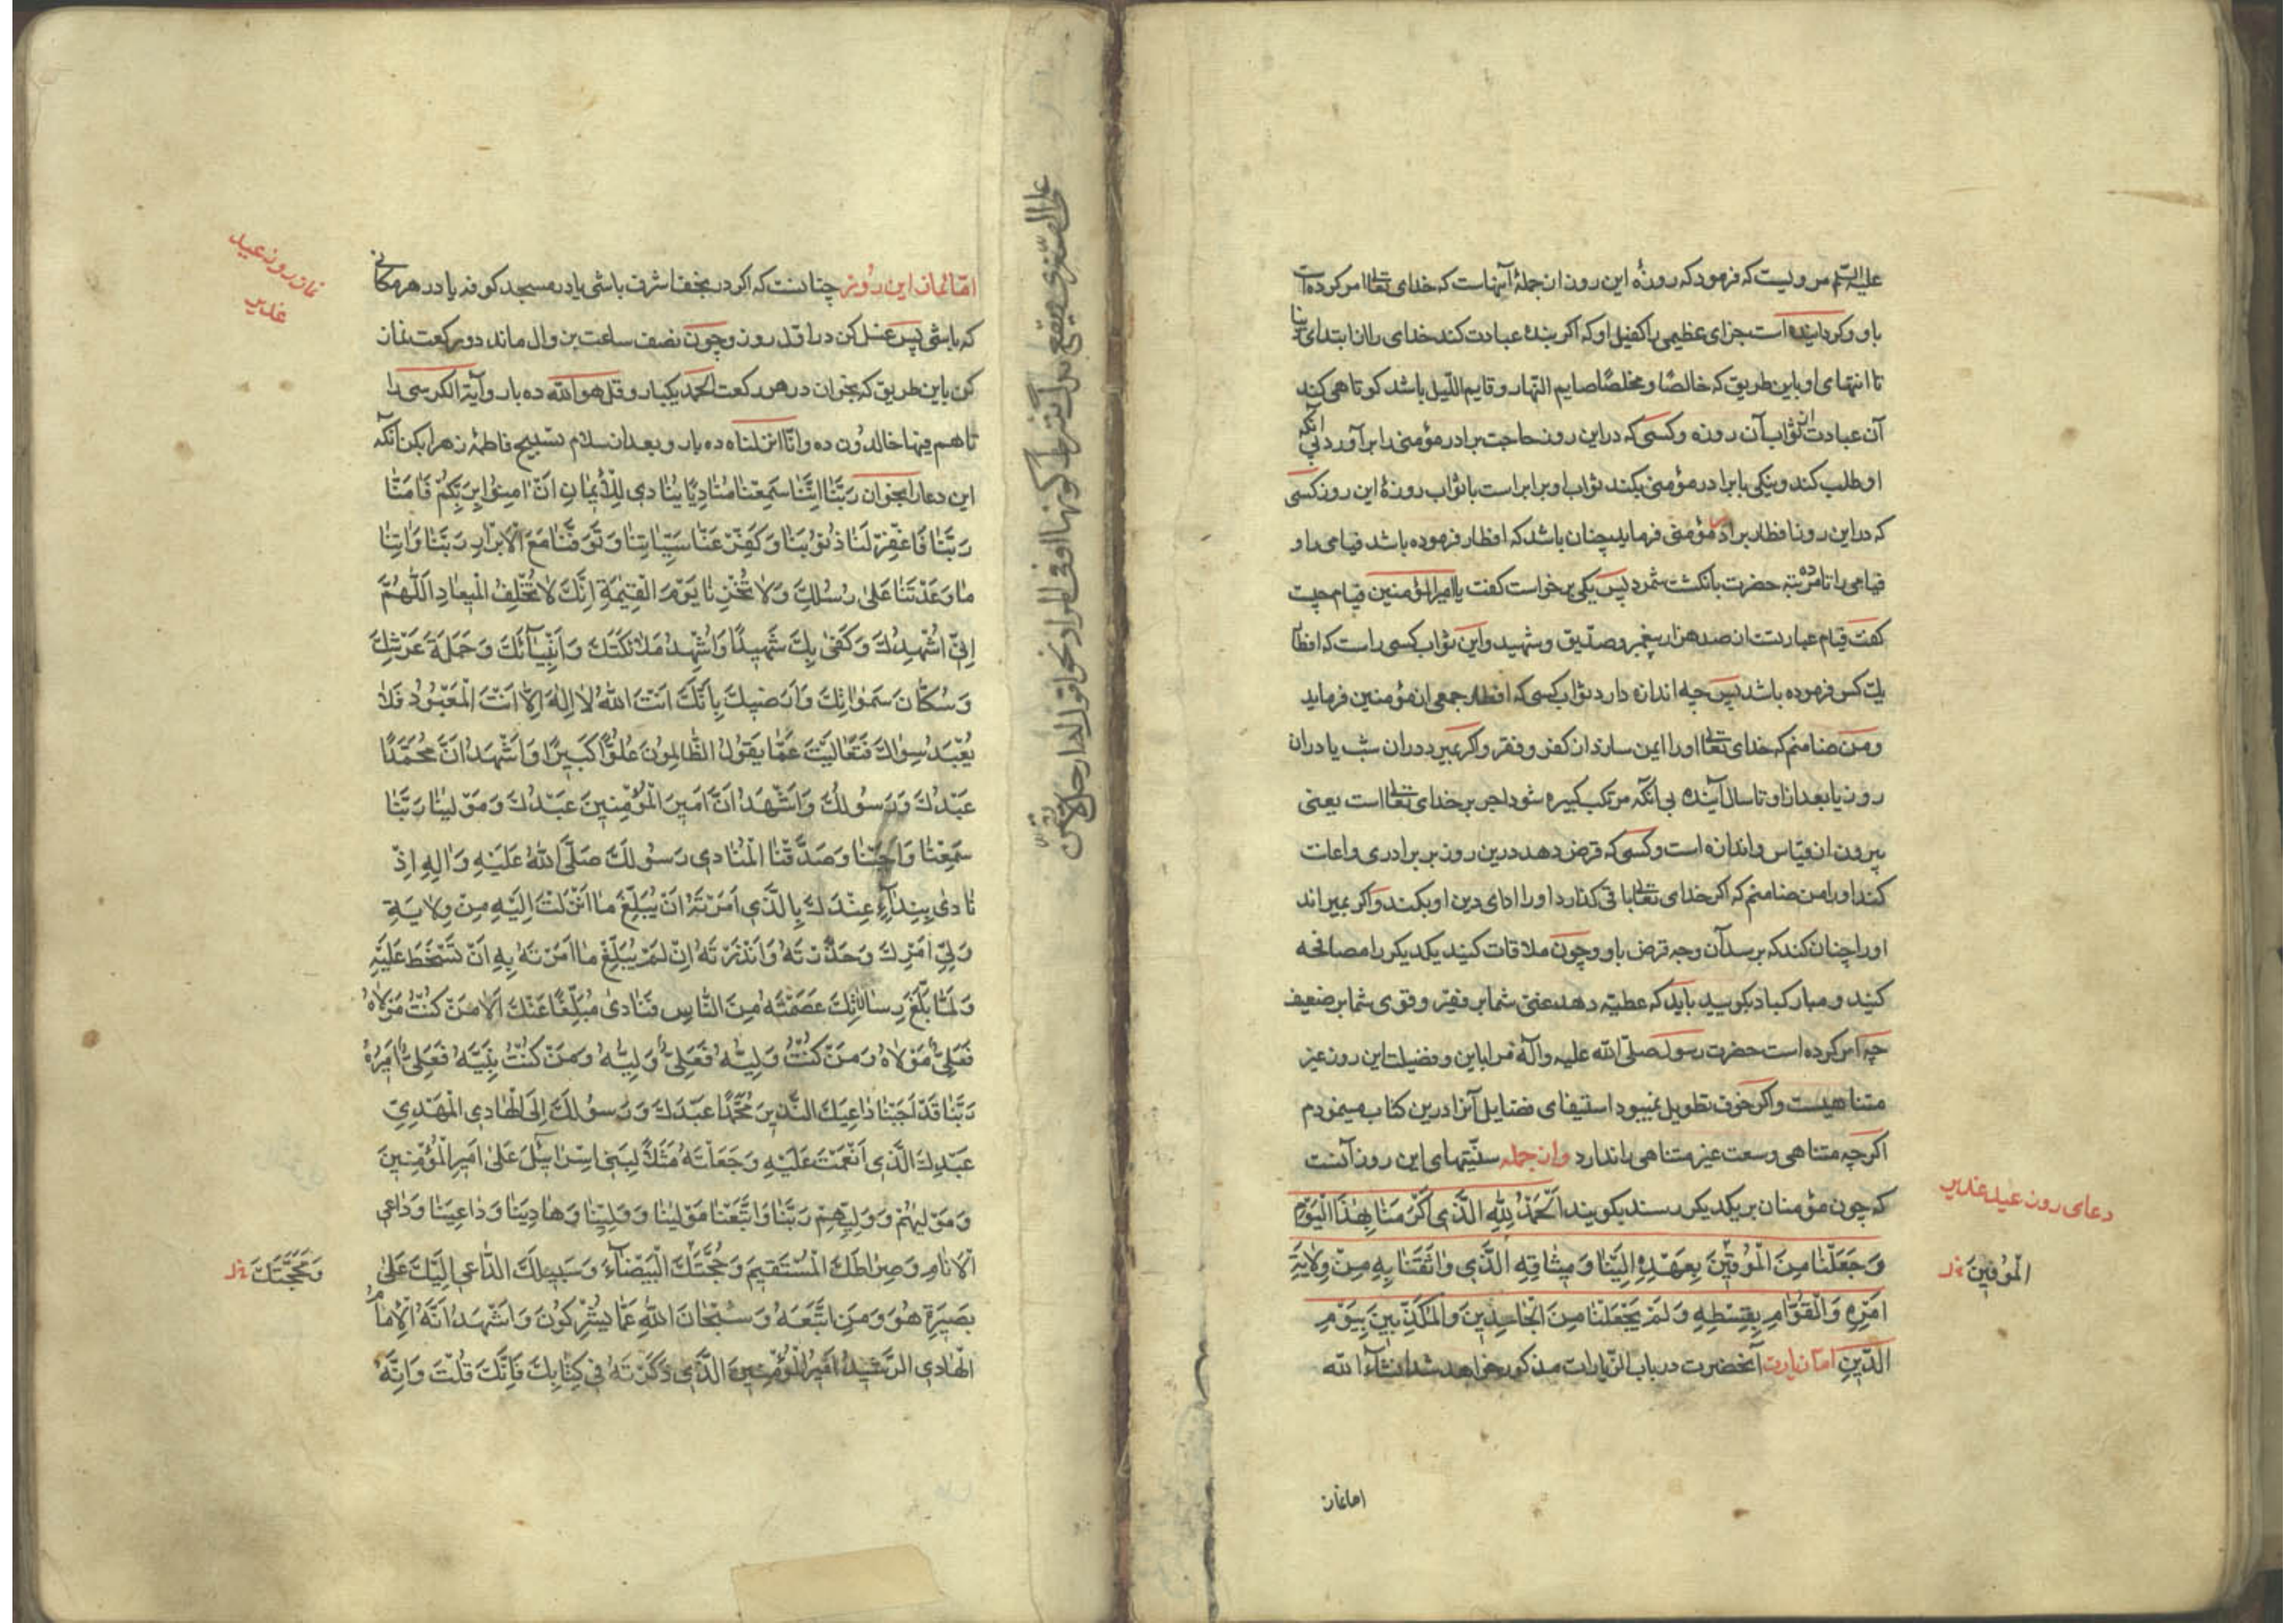 علیه السّلم مرویست که فرمود که روزهٔ این روز از جملهٔ آنهاست که خدای تعالی امر کرده است
باو و کردانیده است جزای عظیمی را کفیل او که اکر بندهٔ عبادت کند خدای را از ابتدای دنیا
تا انتهای او باین طریق که خالصًا و مخلصًا صایم النّهار و قایم اللّیل باشد کوتاهی کند
آن عبادت از ثواب آن روزه و کسی که در این روز حاجت برادر مؤمنی را برآورد بی آنکه
او طلب کند و نیکی با برادر مؤمنی بکند ثواب او برابر است با ثواب روزهٔ این روز کسی
که در این روز افطار برادر مؤمنی فرماید چنان باشد که افطار فرموده باشد فیامی را و
فیامی را تا ده مرتبه حضرت بانکشت شمرد پس یکی برخواست کفت یا امیرالمؤمنین فیام چیست
کفت فیام عبارتست از صد هزار پیغمبر و صدّیق و شهید و این ثواب کسی راست که افطار
یک کس فرموده باشد پس چه اندازه دارد ثواب کسی که افطار جمعی از مؤمنین فرماید
و من ضامنم که خدای تعالی او را ایمن سازد از کفر و فقر و اکر بمیرد در ان شب یا در ان
روز یا بعد از او تا سال آینده بی انکه مرتکب کبیره شود اجر بر خدای تعالی است یعنی
بیرون از قیاس و اندازه است و کسی که قرض دهد درین روز بر برادری و اعانت
کند او را من ضامنم که اکر خدای تعالی باقی کذارد او را ادای دین او بکند و اکر بمیراند
او را چنان کند که برسد آن وجه قرض باو و چون ملاقات کنید یکدیکر را مصافحه
کنید و مبارکباد بکویید باید که عطیّه دهد غنی شما بر فقیر و قوی شما بر ضعیف
چه امر کرده است حضرت رسول صلّی الله علیه و آله مرا باین و فضیلت این روز غیر
متناهیست و اکر خوف تطویل نمیبود استیفای فضایل آنرا درین کتاب مینمودم
اکر چه متناهی وسعت غیر متناهی را ندارد و از جمله سنّتهای این روز آنست
که چون مؤمنان بر یکدیکر رسند بکویند اَلْحَمْدُ لِلّٰهِ الَّذِی اَکْرَمَنَا بِهٰذَا الْیَوْمِ
وَجَعَلَنٰا مِنَ الْمُوقِنِینَ بِعَهْدِهِ اِلَیْنٰا وَمِیثٰاقِهِ الَّذِی وٰاثَقَنٰا بِهِ مِنْ وِلٰایَةِ
اَمْرِهِ وَالْقَوّٰامِ بِقِسْطِهِ وَلَمْ یَجْعَلْنٰا مِنَ الْجٰاحِدِینَ وَالْمُکَذِّبِینَ بِیَوْمِ
الدِّینِ امّا زیارت آنحضرت در باب الزّیارات مذکور خواهد شد انشآء الله
دعای روز عید غدیر
الْمُوفِینَ خل
اما نماز
امّا نماز این روز چنانست که اکر در نجف اشرف باشی یا در مسجد کوفه یا در هر مکانی
که باشی پس غسل کن در اوّل روز و چون نصف ساعت بزوال ماند دو رکعت نماز
کن باین طریق که بخوان در هر رکعت الحمد یکبار و قل هو الله ده بار و آیة الکرسی را
تا هم فیها خالدون ده و انّا انزلناه ده بار و بعد از سلام تسبیح فاطمهٔ زهرا بکن آنکه
این دعا را بخوان رَبَّنٰا اِنَّنٰا سَمِعْنٰا مُنٰادِیًا یُنٰادِی لِلْاِیمٰانِ اَنْ اٰمِنُوا بِرَبِّکُمْ فَاٰمَنّٰا
رَبَّنٰا فَاغْفِرْ لَنٰا ذُنُوبَنٰا وَکَفِّرْ عَنّٰا سَیِّئٰاتِنٰا وَتَوَفَّنٰا مَعَ الْاَبْرٰارِ رَبَّنٰا وَاٰتِنٰا
مٰا وَعَدْتَنٰا عَلیٰ رُسُلِکَ وَلٰا تُخْزِنٰا یَوْمَ الْقِیٰمَةِ اِنَّکَ لٰا تُخْلِفُ الْمِیعٰادَ اَللّٰهُمَّ
اِنِّی اُشْهِدُکَ وَکَفیٰ بِکَ شَهِیدًا وَاُشْهِدُ مَلٰائِکَتَکَ وَاَنْبِیٰآئَکَ وَحَمَلَةَ عَرْشِکَ
وَسُکّٰانَ سَمٰوٰاتِکَ وَاَرَضِیکَ بِاَنَّکَ اَنْتَ اللّٰهُ لٰا اِلٰهَ اِلّٰا اَنْتَ الْمَعْبُودُ فَلٰا
یُعْبَدُ سِوٰاکَ فَتَعٰالَیْتَ عَمّٰا یَقُولُ الظّٰالِمُونَ عُلُوًّا کَبِیرًا وَاَشْهَدُ اَنَّ مُحَمَّدًا
عَبْدُکَ وَرَسُولُکَ وَاَشْهَدُ اَنَّ اَمِیرَ الْمُؤْمِنِینَ عَبْدُکَ وَمَوْلٰینٰا رَبَّنٰا
سَمِعْنٰا وَاَجَبْنٰا وَصَدَّقْنٰا الْمُنٰادِی رَسُولَکَ صَلَّی اللّٰهُ عَلَیْهِ وَاٰلِهِ اِذْ
نٰادیٰ بِنِدٰآءٍ عِنْدَکَ بِالَّذِی اَمَرْتَهُ اَنْ یُبَلِّغَ مٰا اَنْزَلْتَ اِلَیْهِ مِنْ وِلٰایَةِ
وَلِیِّ اَمْرِکَ وَحَذَّرْتَهُ وَاَنْذَرْتَهُ اِنْ لَمْ یُبَلِّغْ مٰا اَمَرْتَهُ بِهِ اَنْ تَسْخَطَ عَلَیْهِ
وَلَمّٰا بَلَّغَ رِسٰالٰاتِکَ عَصَمْتَهُ مِنَ النّٰاسِ فَنٰادیٰ مُبَلِّغًا عَنْکَ اَلٰا مَنْ کُنْتُ مَوْلٰاهُ
فَعَلِیٌّ مَوْلٰاهُ وَمَنْ کُنْتُ وَلِیَّهُ فَعَلِیٌّ وَلِیُّهُ وَمَنْ کُنْتُ نَبِیَّهُ فَعَلِیٌّ اَمِیرُهُ
رَبَّنٰا قَدْ اَجَبْنٰا دٰاعِیَکَ النَّذِیرَ مُحَمَّدًا عَبْدَکَ وَرَسُولَکَ اِلَی الْهٰادِی الْمَهْدِیِّ
عَبْدِکَ الَّذِی اَنْعَمْتَ عَلَیْهِ وَجَعَلْتَهُ مَثَلًا لِبَنِی اِسْرٰائِیلَ عَلیٰ اَمِیرِ الْمُؤْمِنِینَ
وَمَوْلٰیهُمْ وَوَلِیِّهِمْ رَبَّنٰا وَاتَّبَعْنٰا مَوْلٰینٰا وَوَلِیَّنٰا وَهٰادِینٰا وَدٰاعِیَنٰا وَدٰاعِیَ
الْاَنٰامِ وَصِرٰاطَکَ الْمُسْتَقِیمَ وَحُجَّتَکَ الْبَیْضٰآءَ وَسَبِیلَکَ الدّٰاعِیَ اِلَیْکَ عَلیٰ
بَصِیرَةٍ هُوَ وَمَنِ اتَّبَعَهُ وَسُبْحٰانَ اللّٰهِ عَمّٰا یُشْرِکُونَ وَاَشْهَدُ اَنَّهُ الْاِمٰامُ
الْهٰادِی الرَّشِیدُ اَمِیرُ الْمُؤْمِنِینَ الَّذِی ذَکَرْتَهُ فِی کِتٰابِکَ فَاِنَّکَ قُلْتَ وَاِنَّهُ
نماز روز عید
غدیر
وَمَحَجَّتَکَ خل